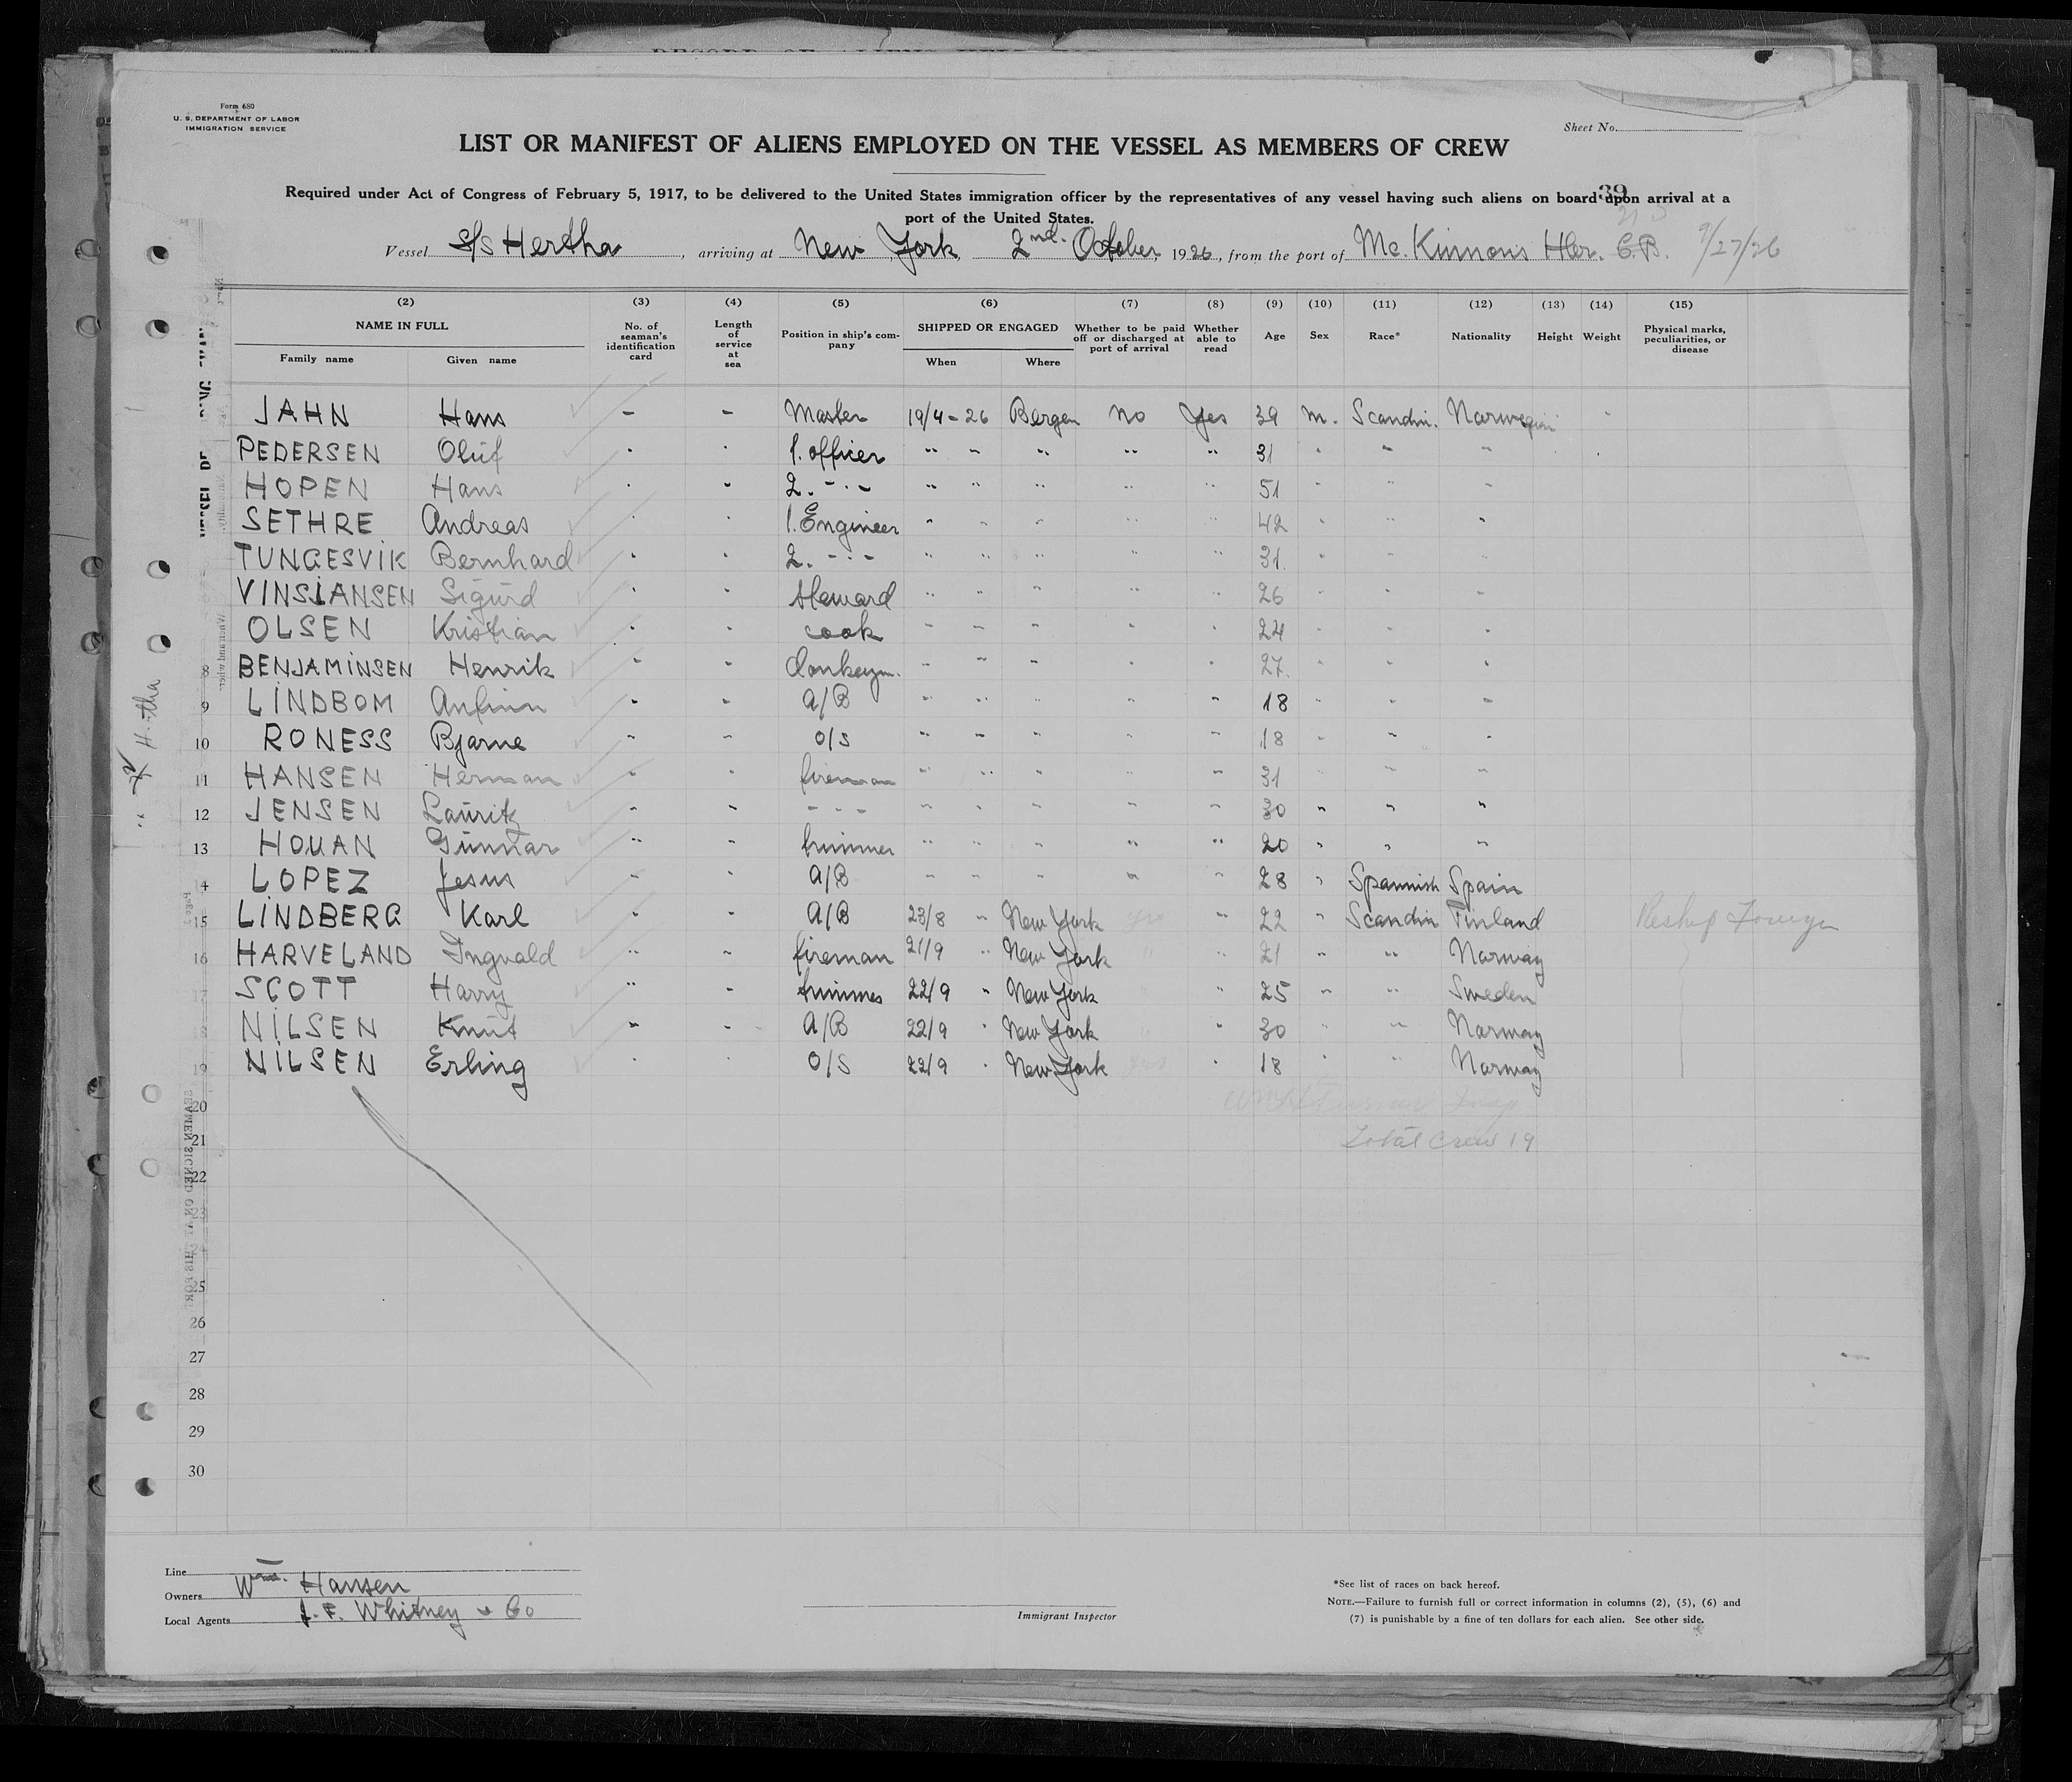 Form 680
U. S. DEPARTMENT OF LABOR
IMMIGRATION SERVICE
Sheet No.
LIST OR MANIFEST OF ALIENS EMPLOYED ON THE VESSEL AS MEMBERS OF CREW
39
Required under Act of Congress of February 5, 1917, to be delivered to the United States immigration officer by the representatives of any vessel having such aliens on board upon arrival at a
port of the United States.
Vessel S/S Hertha, arriving at New York, 2nd. October, 1926, from the port of Mc. Kinnons Hbr. C.B. 9/27/26
(2) (3) (4) (5) (6) (7) (8) (9) (10) (11) (12) (13) (14) (15)
NAME IN FULL No. of seaman's identification card Length of service at sea Position in ship's company SHIPPED OR ENGAGED Whether to be paid off or discharged at port of arrival Whether able to read Age Sex Race* Nationality Height Weight Physical marks, peculiarities, or disease
Family name Given name When Where
JAHN Hans - - Master 19/4-26 Bergen no Yes 39 m. Scandin. Norwegian
PEDERSEN Oluf " " 1. officer " " " " " 31 " " "
HOPEN Hans " " 2. -"- " " " " " 51 " " "
SETHRE Andreas " " 1. Engineer " " " " " 42 " " "
TUNGESVIK Bernhard " " 2. -"- " " " " " 31 " " "
VINSJANSEN Sigurd " " Steward " " " " " 26 " " "
OLSEN Kristian " " cook " " " " " 24 " " "
8 BENJAMINSEN Henrik " " donkeym. " " " " " 27 " " "
9 LINDBOM Anfinn " " A/B " " " " " 18 " " "
10 RONESS Bjarne " " O/S " " " " " 18 " " "
11 HANSEN Herman " " fireman " " " " " 31 " " "
12 JENSEN Lauritz " " -"- " " " " " 30 " " "
13 HOUAN Gunnar " " trimmer " " " " " 20 " " "
14 LOPEZ Jesus " " A/B " " " " " 28 " Spannish Spain
15 LINDBERG Karl " " A/B 23/8 " New York yes " 22 " Scandin Finland Reship Foreign
16 HARVELAND Ingvald " " fireman 21/9 " New York " " 21 " " Norway
17 SCOTT Harry " " trimmes 22/9 " New York " 25 " " Sweden
18 NILSEN Knut " " A/B 22/9 " New York " 30 " " Norway
19 NILSEN Erling " " O/S 22/9 " New York yes " 18 " " Norway
20
Total Crew 19
21
22
23
24
25
26
27
28
29
30
Line
Owners Wm. Hansen
Local Agents J. F. Whitney & Co
Immigrant Inspector
*See list of races on back hereof.
NOTE.—Failure to furnish full or correct information in columns (2), (5), (6) and
(7) is punishable by a fine of ten dollars for each alien. See other side.